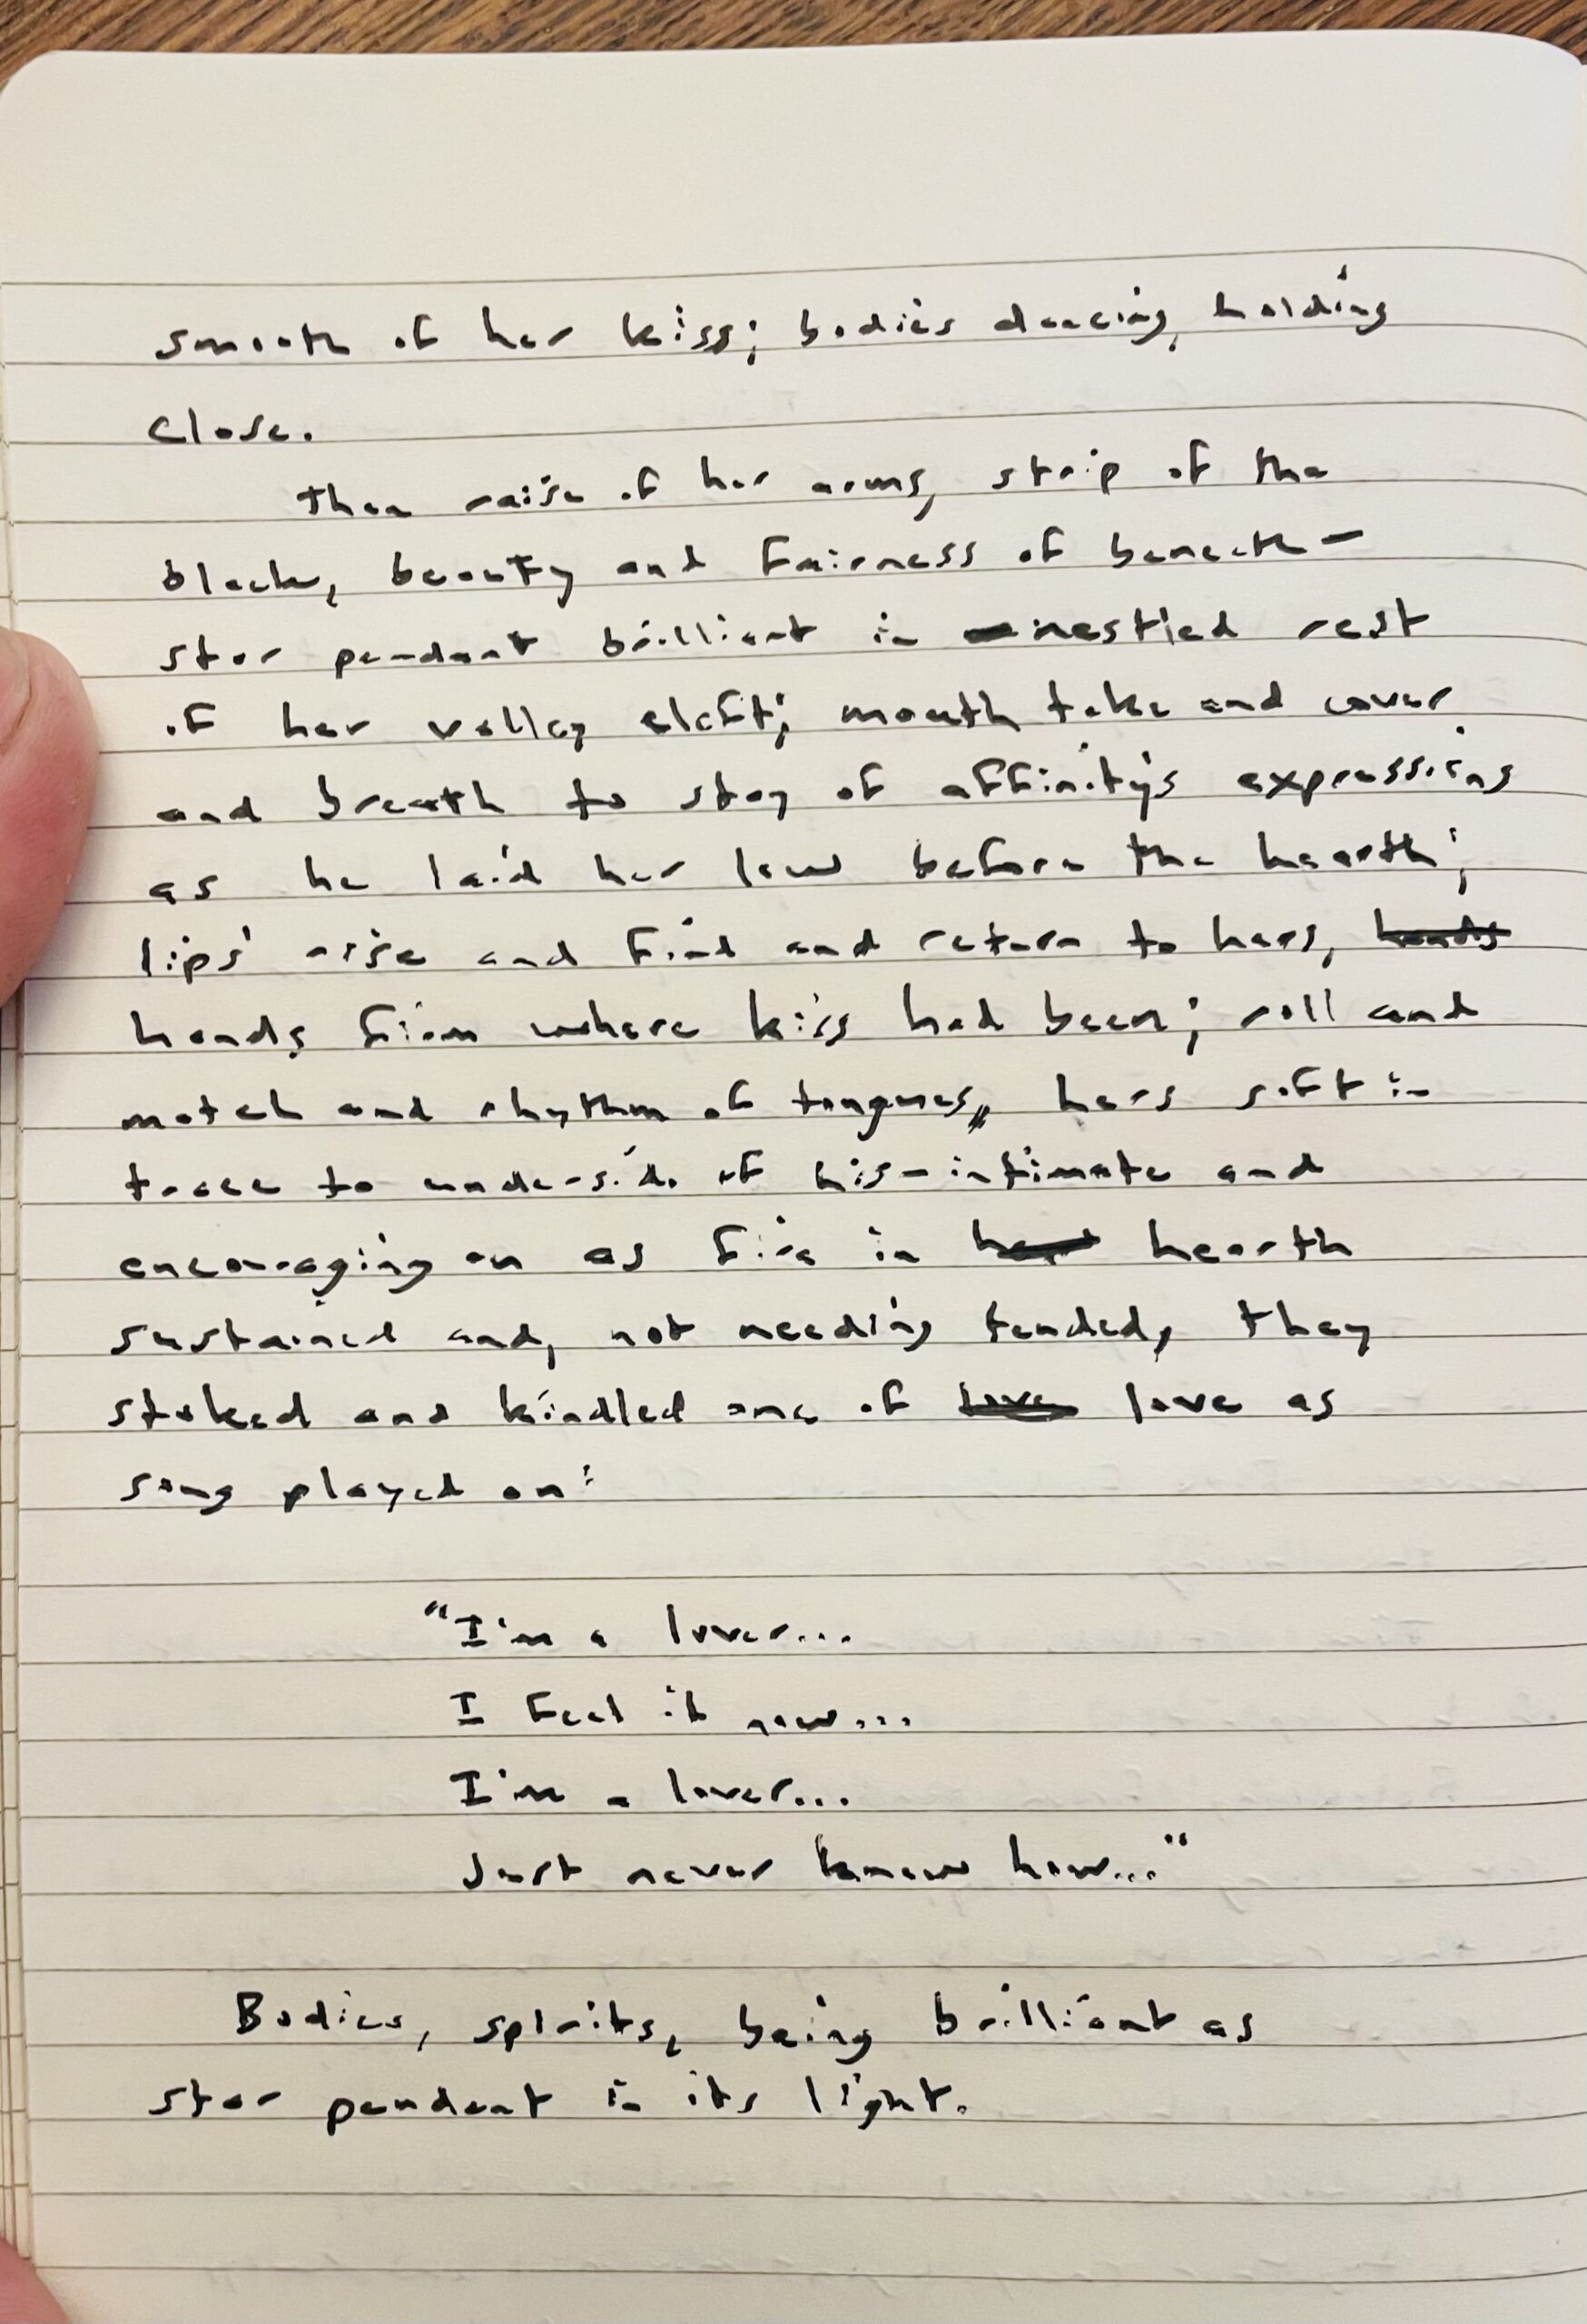 smooth of her kiss; bodies dancing, holding
close.
Then raise of her arms, strip of the
black, beauty and fairness of beneath—
star pendant brilliant in nestled rest
of her valley cleft; mouth take and cover
and breath to stay of affinity's expressing
as he laid her low before the hearth;
lips' rise and find and return to hers, hands
hands firm where kiss had been; roll and
match and rhythm of tongues, hers soft in
trace to underside of his–intimate and
encouraging on as fire in hearth
sustained and, not needing tended, they
stoked and kindled one of love love as
song played on:
"I'm a lover...
I feel it now...
I'm a lover...
Just never knew how..."
Bodies, spirits, being brilliant as
star pendant in its light.